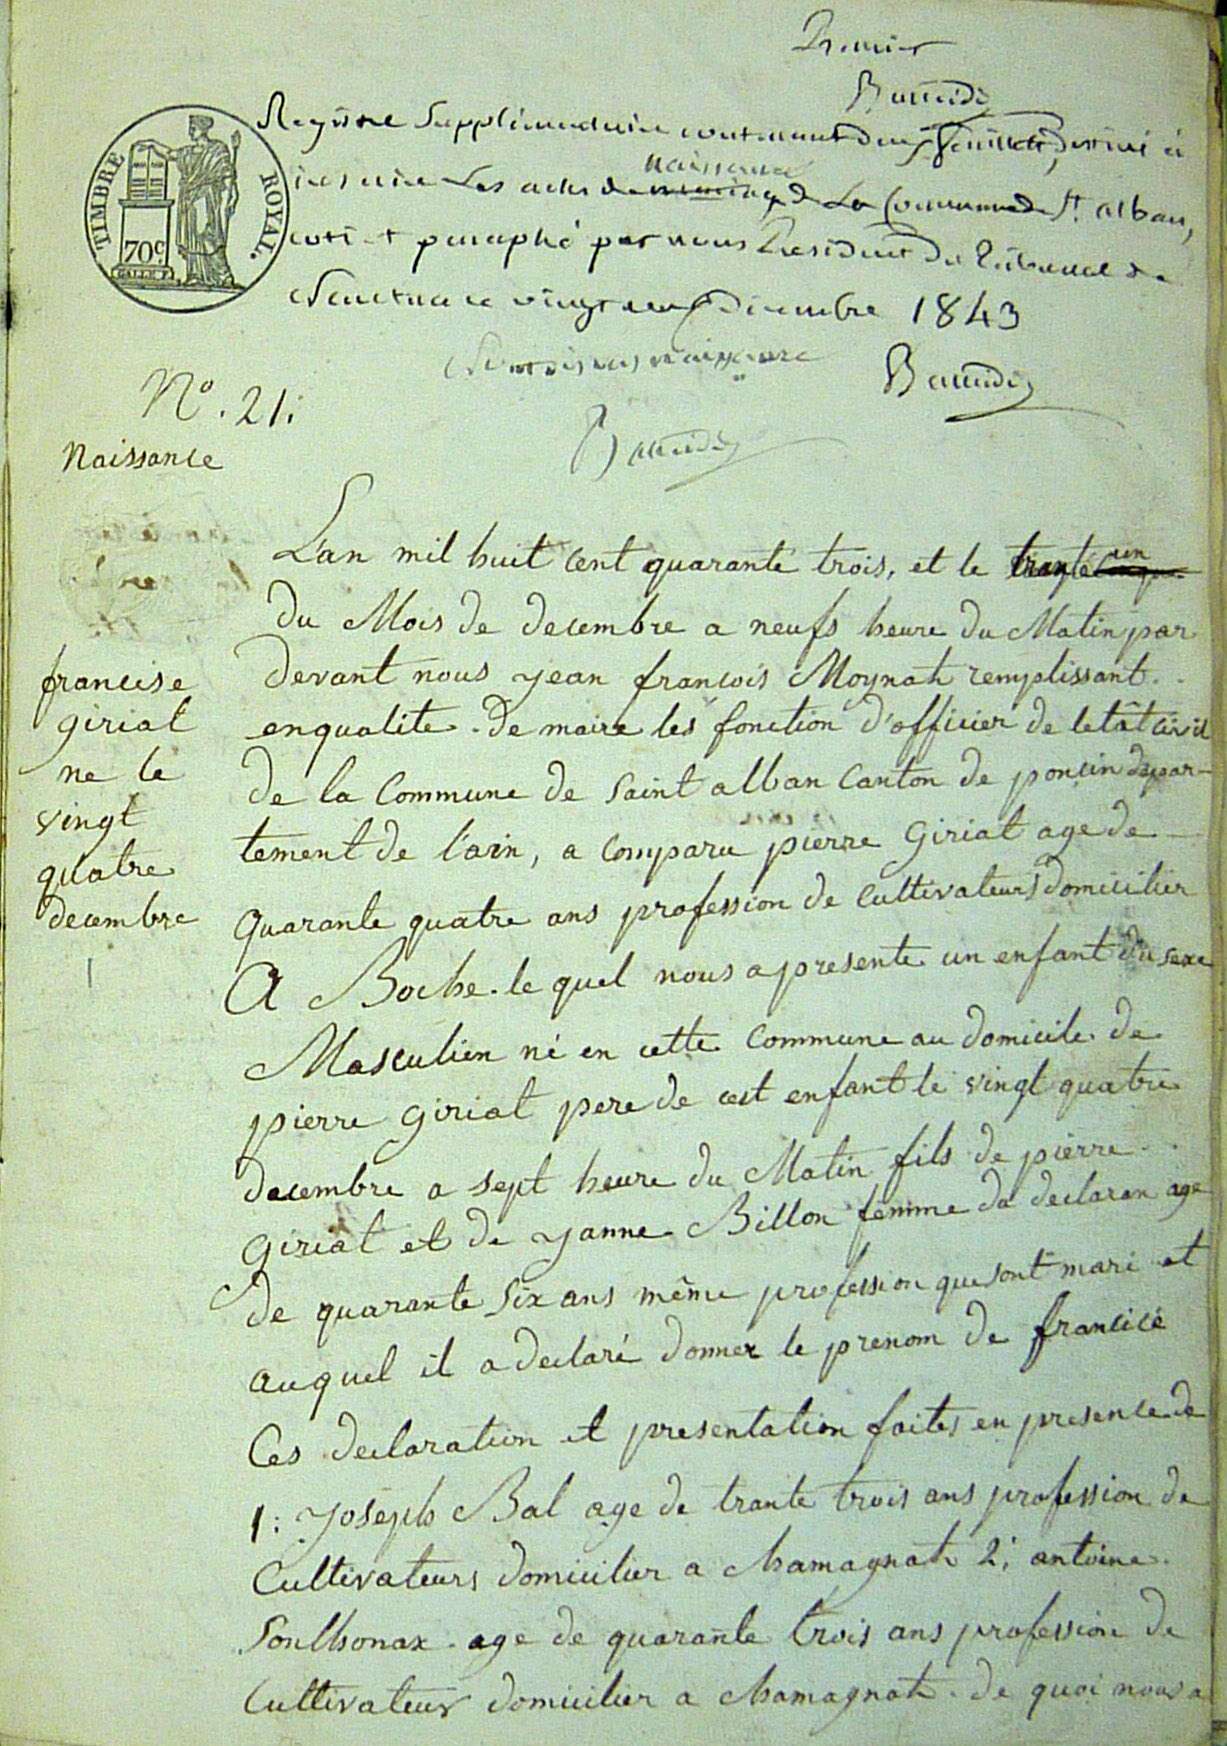 Premier
TIMBRE ROYAL.
70c
Registre Supplémentaire contenant deux feuillets, destiné à
inscrire Les actes de mariage naissance de La Commune de St. alban,
coté et paraphé par nous President du Tribunal de
Nantua ce vingt neuf Decembre 1843
naissance
No. 21:
Naissance
L'an mil huit cent quarante trois, et le trante cinque un
du Mois de decembre a neufs heure du Matin par
devant nous yean francois Moynat remplissant
enqualite de maire les fonction d'officier de letât civil
de la Commune de Saint alban Canton de poncin depar-
tement de l'ain, a comparu pierre Giriat age de
quarante quatre ans profession de Cultivateurs domicilier
A Boche. le quel nous a presente un enfant du sexe
Masculien né en cette Commune au domicile de
pierre giriat pere de cest enfant le vingt quatre
decembre a sept heure du Matin fils de pierre
giriat et de yanne Billon femme du declaran age
de quarante six ans même profession que sont mari et
auquel il a declaré donner le prenom de francisé
Ces declaration et presentation faites en presence de
1: yoseph Bal age de trante trois ans profession de
Cultivateurs domicilier a chamagnat 2: antoine
Sonthonax age de quarante trois ans profession de
Cultivateur domicilier a chamagnat. de quoi nous a
francise
giriat
ne le
vingt
quatre
decembre